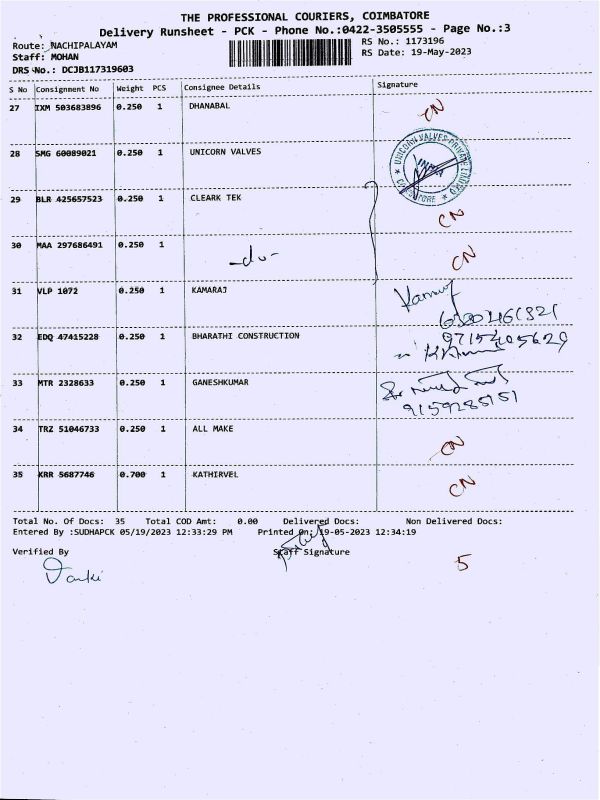 THE PROFESSIONAL COURIERS, COIMBATORE
Delivery Runsheet - PCK - Phone No.:0422-3505555 - Page No.:3
Route: NACHIPALAYAM
RS No.: 1173196
Staff: MOHAN
RS Date: 19-May-2023
DRS No.: DCJB117319603
S No Consignment No Weight PCS Consignee Details Signature
27 IXM 503683896 0.250 1 DHANABAL CN
28 SMG 60089021 0.250 1 UNICORN VALVES
UNICORN VALVES PRIVATE LIMITED
29 BLR 425657523 0.250 1 CLEARK TEK CN
30 MAA 297686491 0.250 1 -do- CN
31 VLP 1072 0.250 1 KAMARAJ
32 EDQ 47415228 0.250 1 BHARATHI CONSTRUCTION 9715405629
33 MTR 2328633 0.250 1 GANESHKUMAR
9159285151
34 TRZ 51046733 0.250 1 ALL MAKE CN
35 KRR 5687746 0.700 1 KATHIRVEL CN
Total No. Of Docs: 35 Total COD Amt: 0.00 Delivered Docs: Non Delivered Docs:
Entered By :SUDHAPCK 05/19/2023 12:33:29 PM Printed On: 19-05-2023 12:34:19
Verified By Staff Signature
5